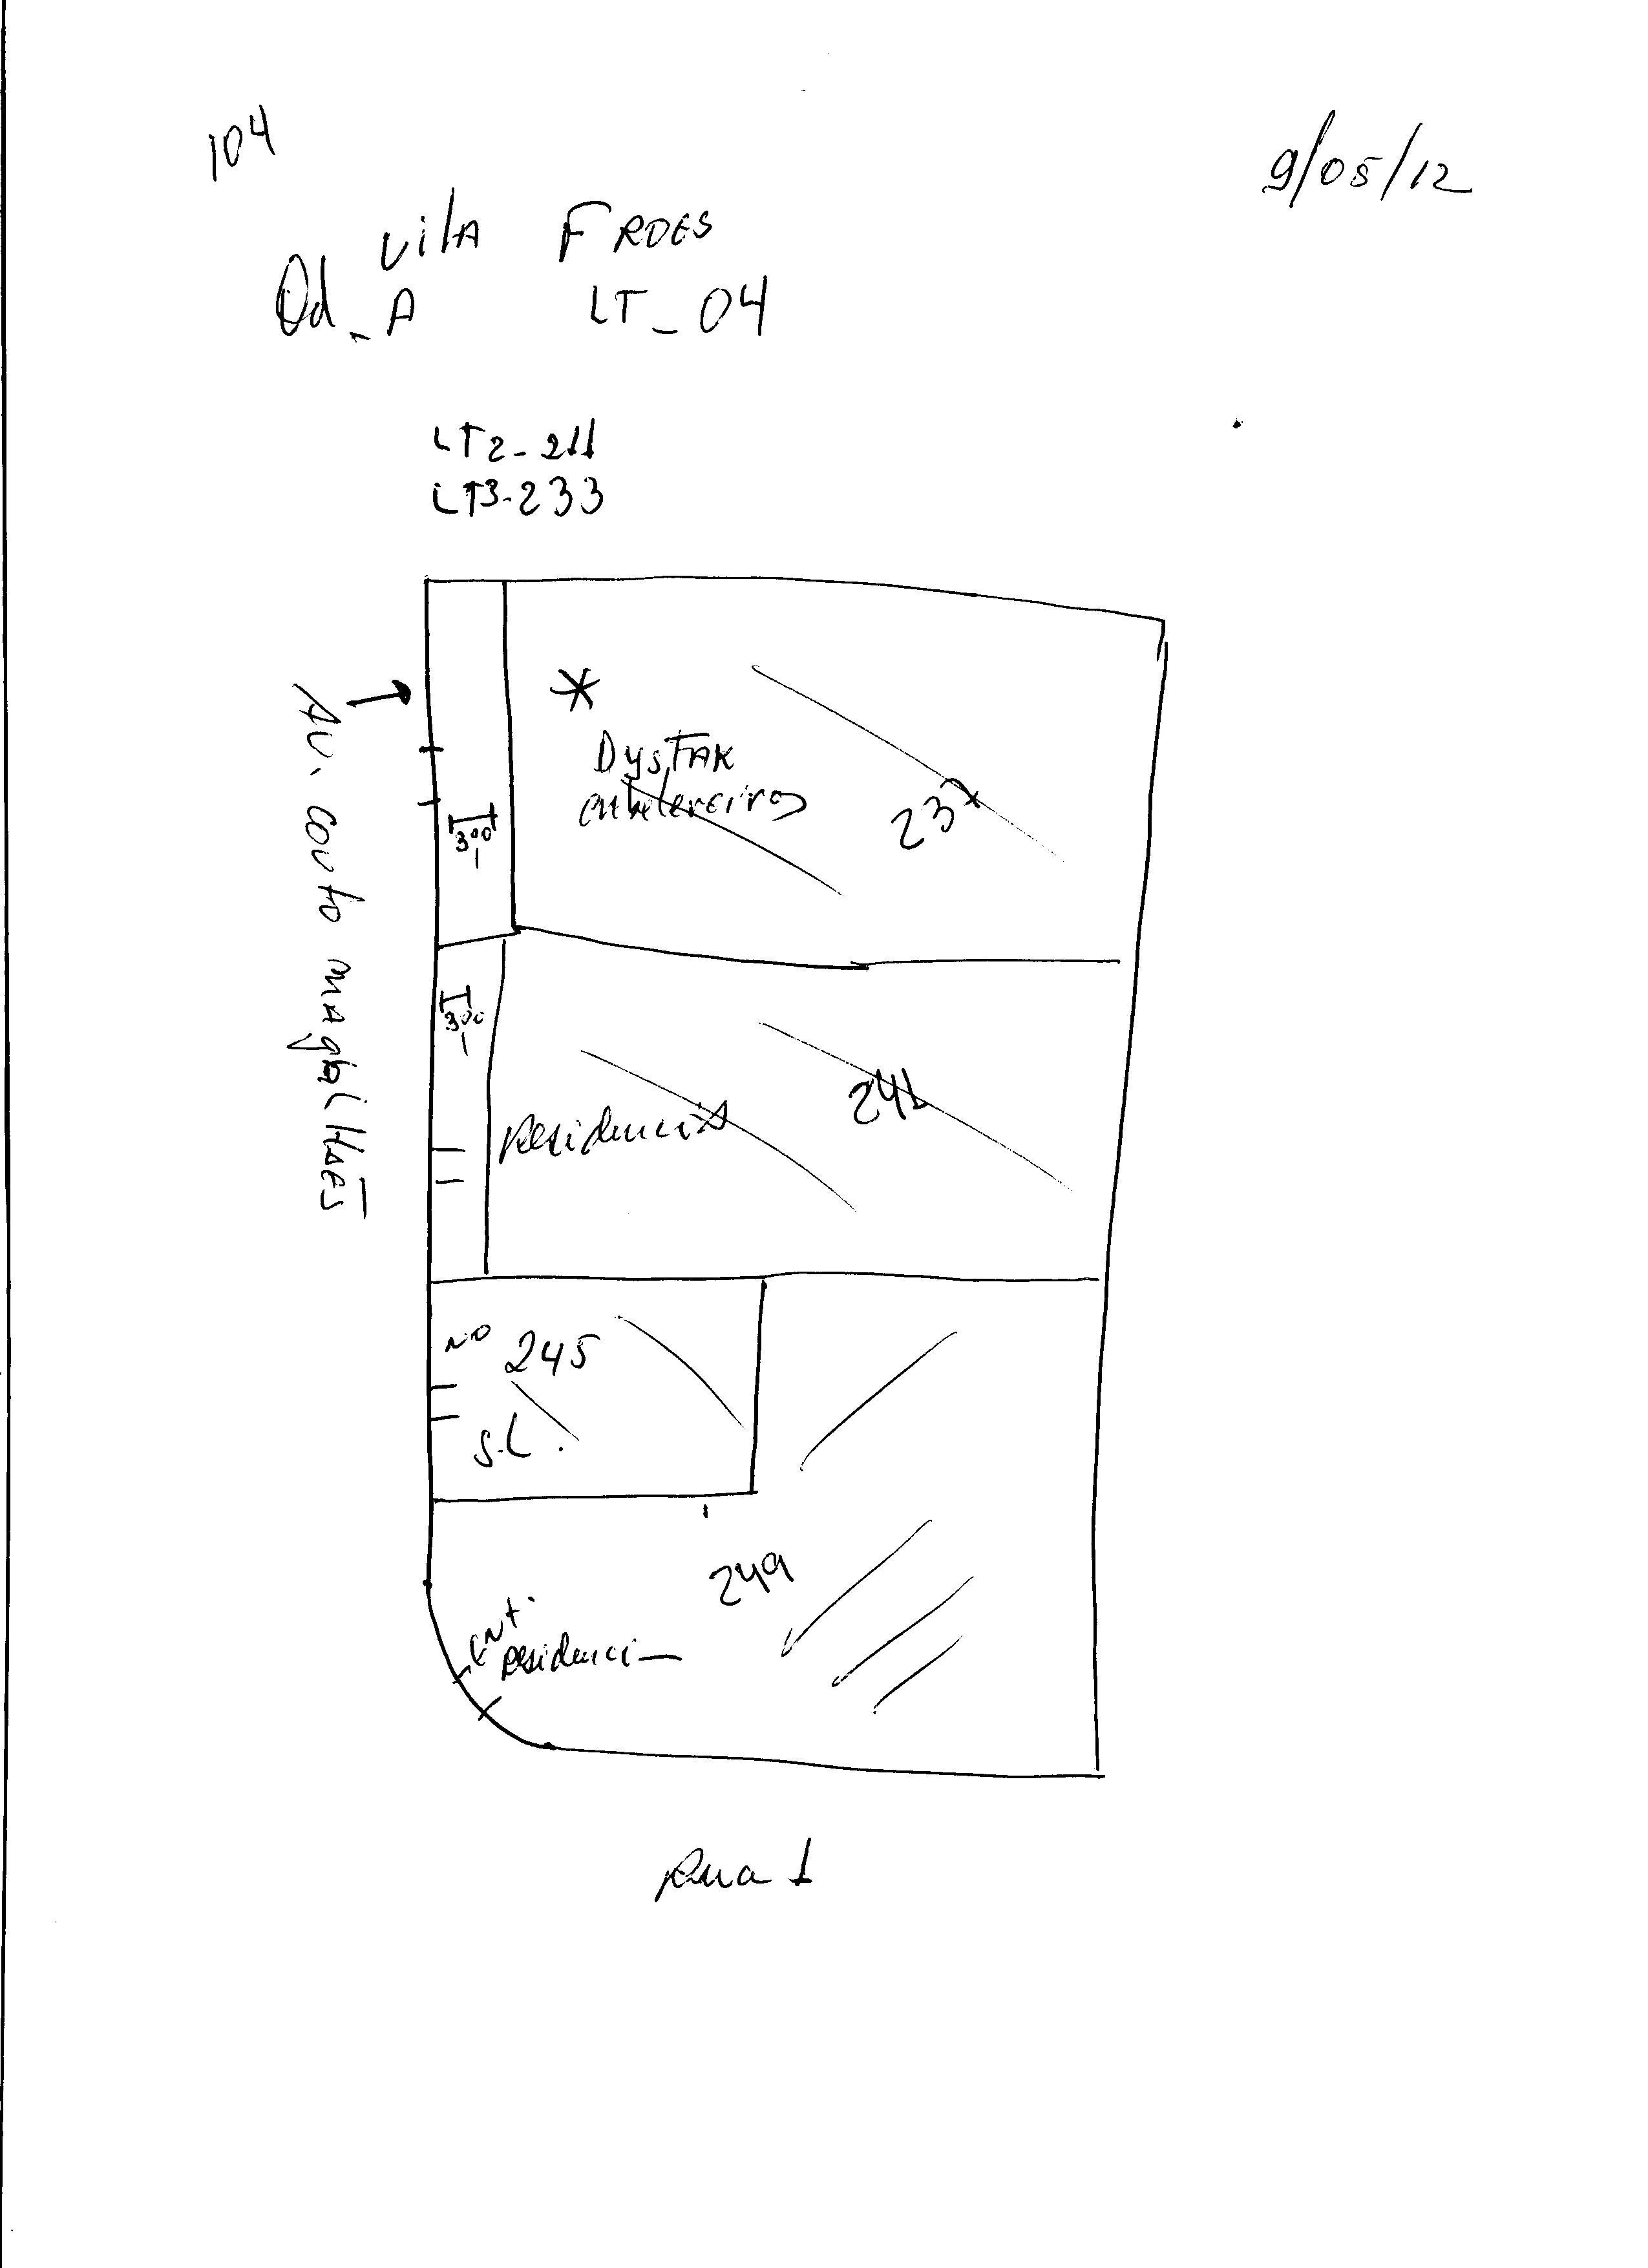 104
9/05/12
vilA FROES
Qd_A LT_04
LT2-211
LT3-233
Av. couto magalHães
DysTAK
cabelereiros
237
300
300
Residencia
241
Nº 245
S.L.
249
ENt.
Residenci
Rua 1